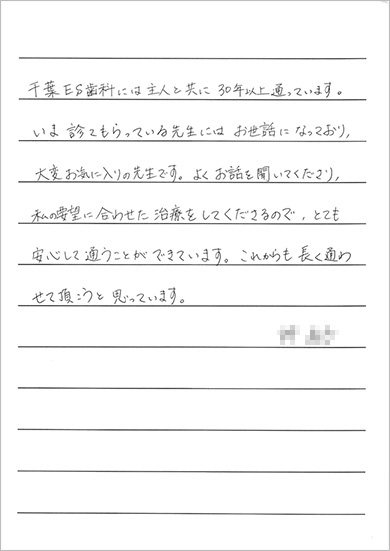 千葉ES歯科には主人と共に30年以上通っています。
いま診てもらっている先生にはお世話になっており,
大変お気に入りの先生です。よくお話を聞いてくださり,
私の要望に合わせた治療をしてくださるので,とても
安心して通うことができています。これからも長く通わ
せて頂こうと思っています。